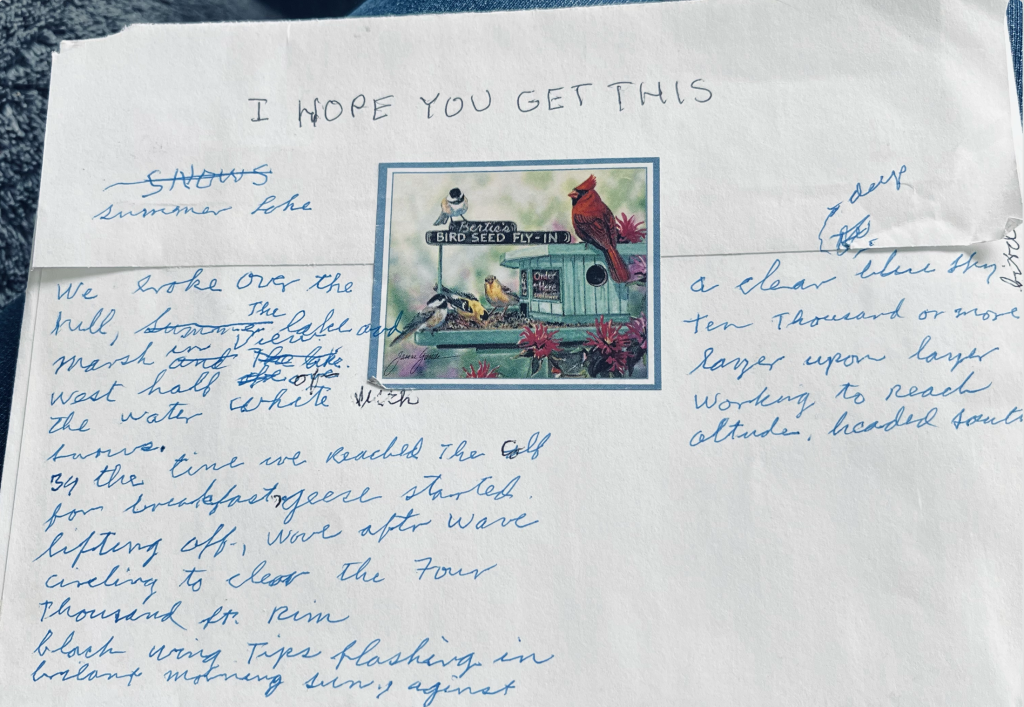 I HOPE YOU GET THIS
SNOWS
Summer Lake
Bertie's
BIRD SEED FLY-IN
Order
Here
We broke over the
hill, Summer The lake and
marsh and in View. The lake
west half of
the water white with
snows.
By the time we reached The
for breakfast, geese started
lifting off, wave aftr wave
circling to clear the Four
Thousand ft. Rim
black wing Tips flashing in
brilant morning sun, aginst
deep
a clear blue sky
Ten Thousand or more
layer upon layer
working to reach
altude, headed sout
bird